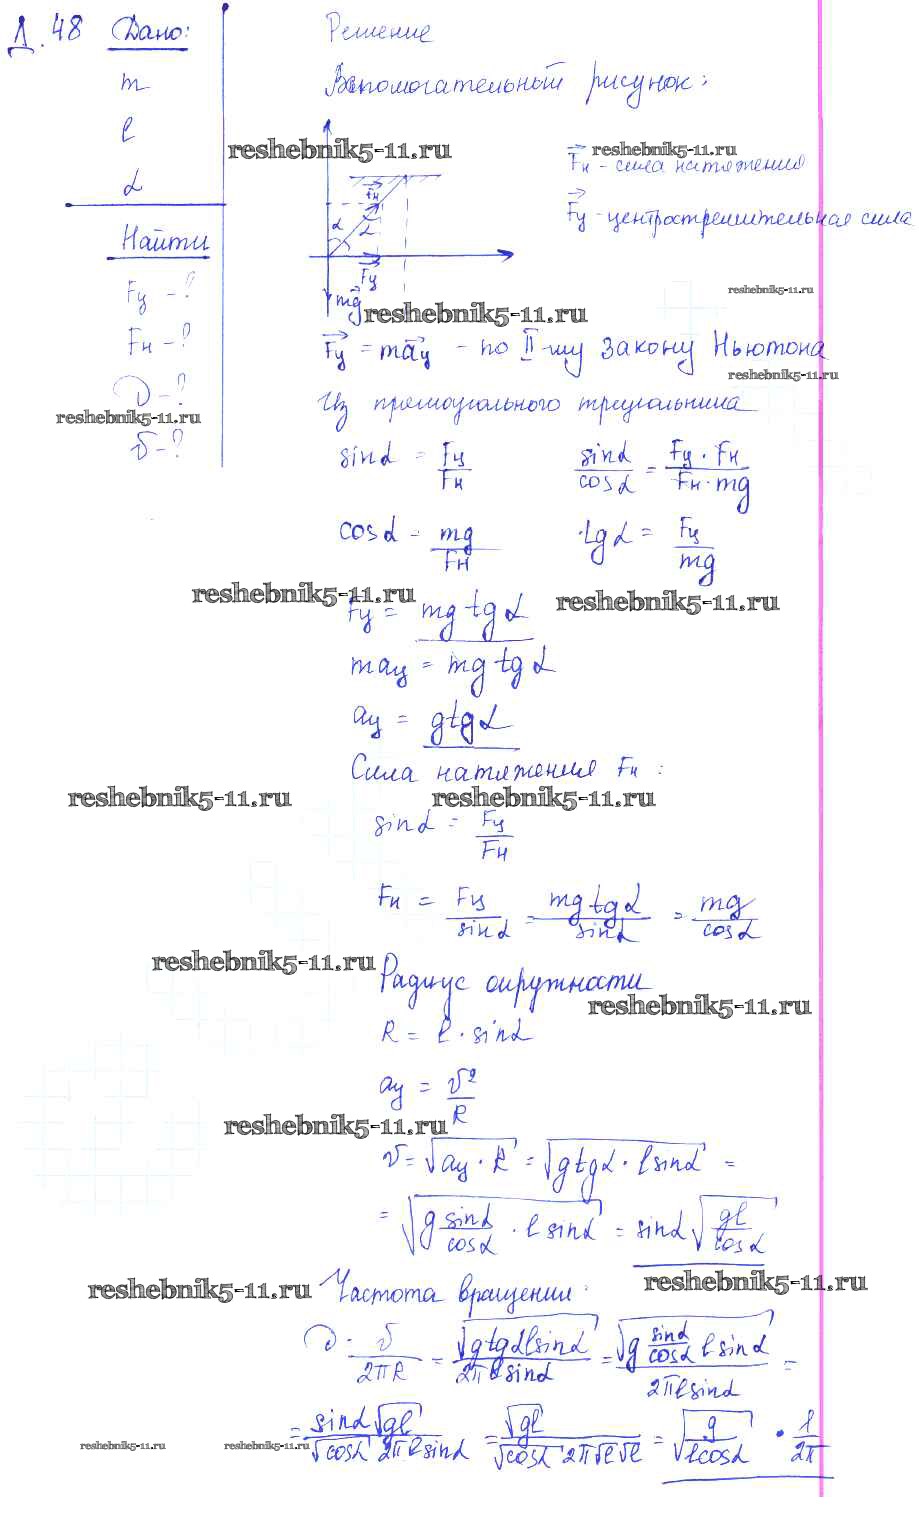 Д. 48 Дано: Решение
m Вспомогательный рисунок:
l
reshebnik5-11.ru reshebnik5-11.ru
Fн - сила натяжения
α
Fц - центростремительная сила
Найти
Fн
α α
Fц
Fц - ? reshebnik5-11.ru
mg reshebnik5-11.ru
Fн - ? Fц = maц - по II-му закону Ньютона
reshebnik5-11.ru
ν - ? Из прямоугольного треугольника
reshebnik5-11.ru
υ - ? sinα = Fц/Fн sinα/cosα = Fц · Fн/Fн · mg
cosα = mg/Fн tgα = Fц/mg
reshebnik5-11.ru reshebnik5-11.ru
Fц = mg tgα
maц = mg tgα
aц = g tgα
Сила натяжения Fн :
reshebnik5-11.ru reshebnik5-11.ru
sinα = Fц/Fн
Fн = Fц/sinα = mg tgα/sinα = mg/cosα
reshebnik5-11.ru
Радиус окружности
reshebnik5-11.ru
R = l · sinα
aц = υ²/R
reshebnik5-11.ru
υ = √(aц · R) = √(g tgα · l sinα) =
= √(g sinα/cosα · l sinα) = sinα √(gl/cosα)
reshebnik5-11.ru Частота вращения : reshebnik5-11.ru
ν = υ/2πR = √(g tgα l sinα)/2π l sinα = √(g sinα/cosα l sinα)/2π l sinα =
= sinα √gl/√cosα 2π l sinα = √gl/√cosα 2π √l √l = √(g/l cosα) · 1/2π
reshebnik5-11.ru reshebnik5-11.ru